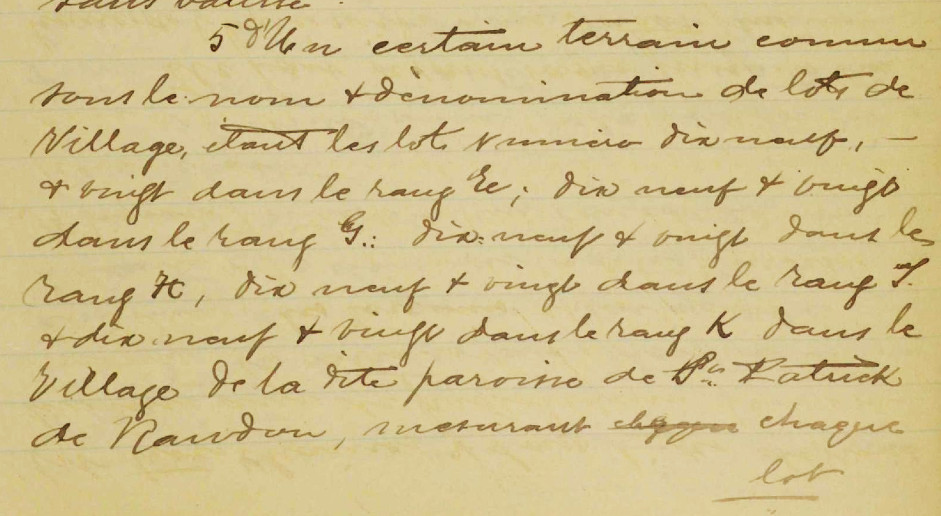 sans bâtisse.
5° Un certain terrain connu
sous le nom & dénomination de lots de
Village, étant les lots numéro dix neuf, —
& vingt dans le rang E; dix neuf & vingt
dans le rang G.: dix-neuf & vingt dans le
rang H, dix neuf & vingt dans le rang I.
& dix-neuf & vingt dans le rang K dans le
Village de la dite paroisse de St. Patrick
de Rawdon, mesurant chaque
lot